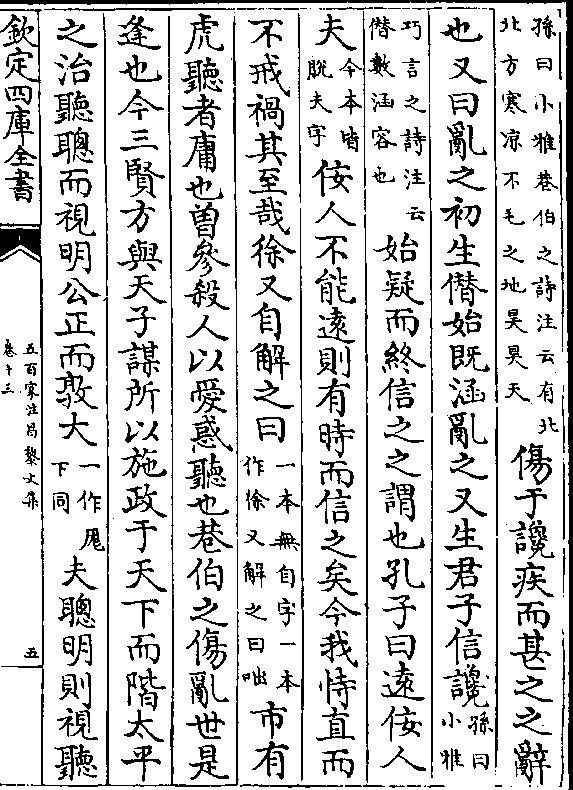 孫曰小雅巷伯之詩注云有北
北方寒凉不毛之地昊昊天
傷于讒疾而甚之之辭
也又曰亂之初生僭始既涵亂之又生君子信讒
孫曰
小雅
巧言之詩注云
僭數涵容也
始疑而終信之之謂也孔子曰遠佞人
夫
今本皆
脫夫字
佞人不能遠則有時而信之矣今我恃直而
不戒禍其至哉徐又自解之曰
一本無自字一本
作徐又解之曰咄
市有
虎聽者庸也曽參殺人以愛惑聽也巷伯之傷亂世是
逢也今三賢方與天子謀所以施政于天下而階太平
之治聽聰而視明公正而敦大
一作厖
下同
夫聰明則視聽
欽定四庫全書
五百家注昌黎文集
卷十三
五